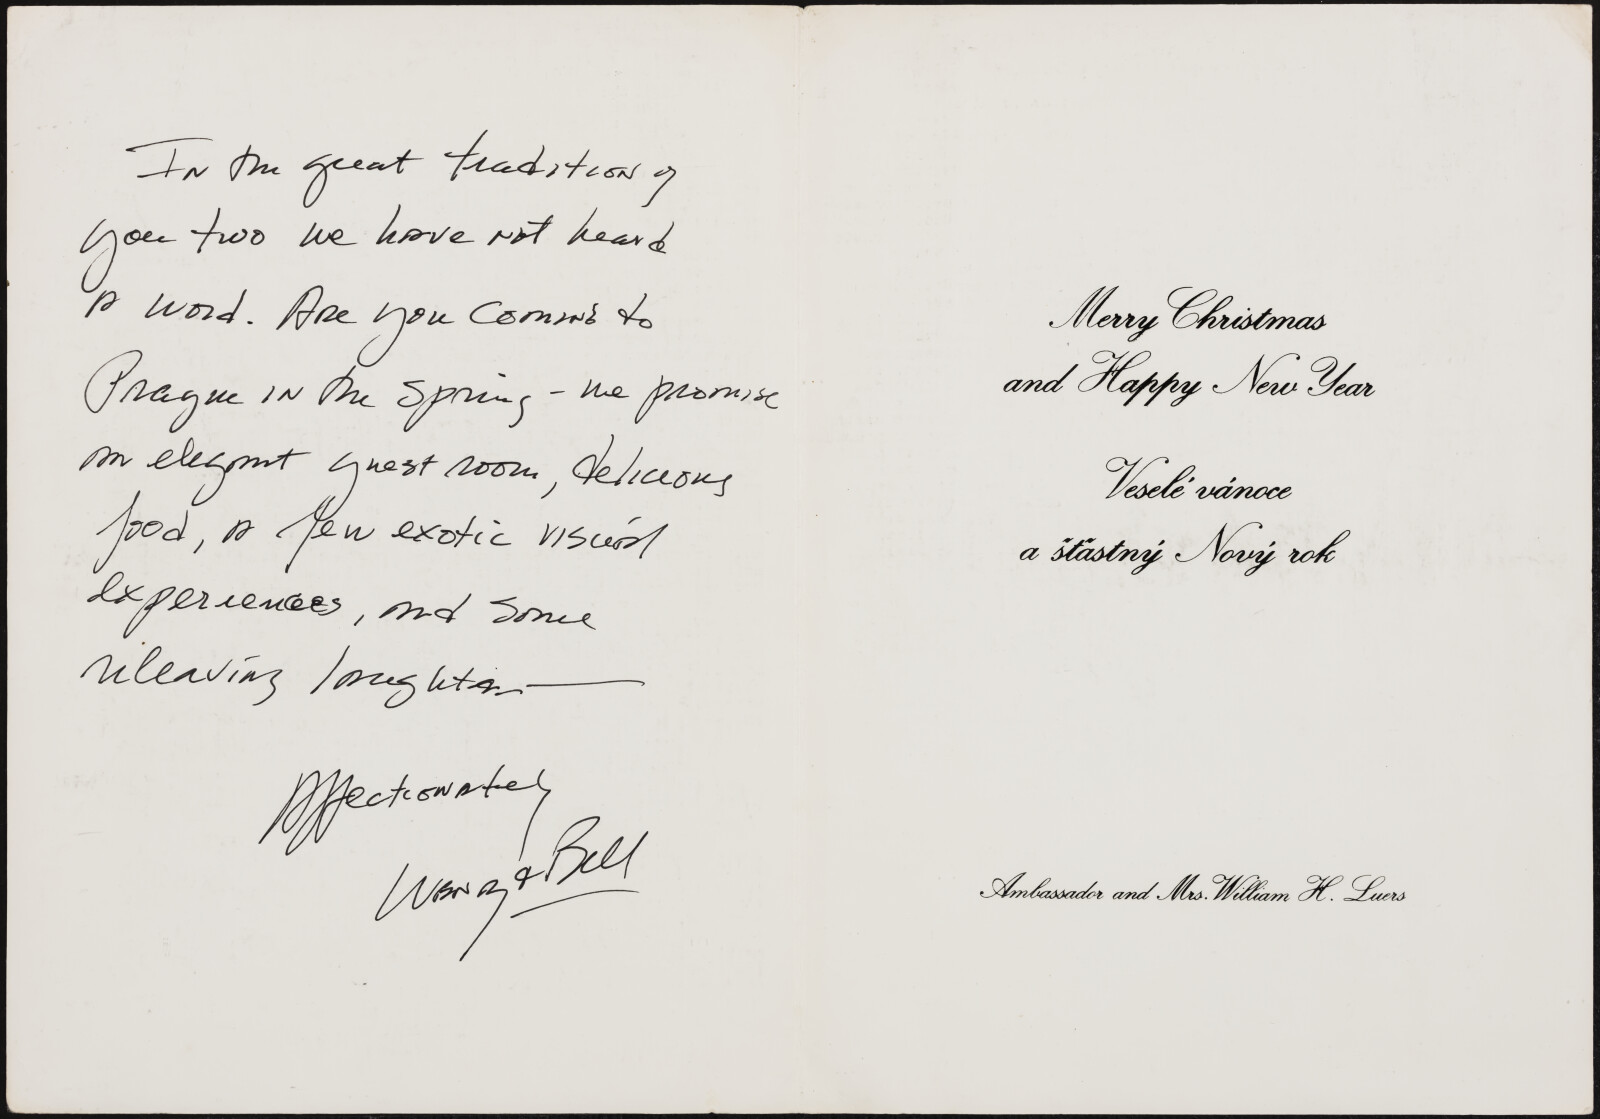 In the great tradition of
you two we have not heard
a word. Are you coming to
Prague in the spring - we promise
an elegant guest room, delicious
food, a few exotic visual
experiences, and some
relieving laughter
Affectionately
Wendy & Bill
Merry Christmas
and Happy New Year
Veselé vánoce
a šťastný Nový rok
Ambassador and Mrs. William H. Luers